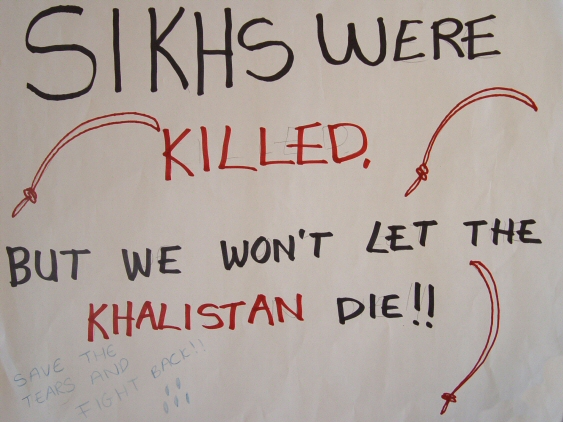 SIKHS WERE
KILLED.
BUT WE WON'T LET THE
KHALISTAN DIE!!
SAVE THE
TEARS AND
FIGHT BACK!!